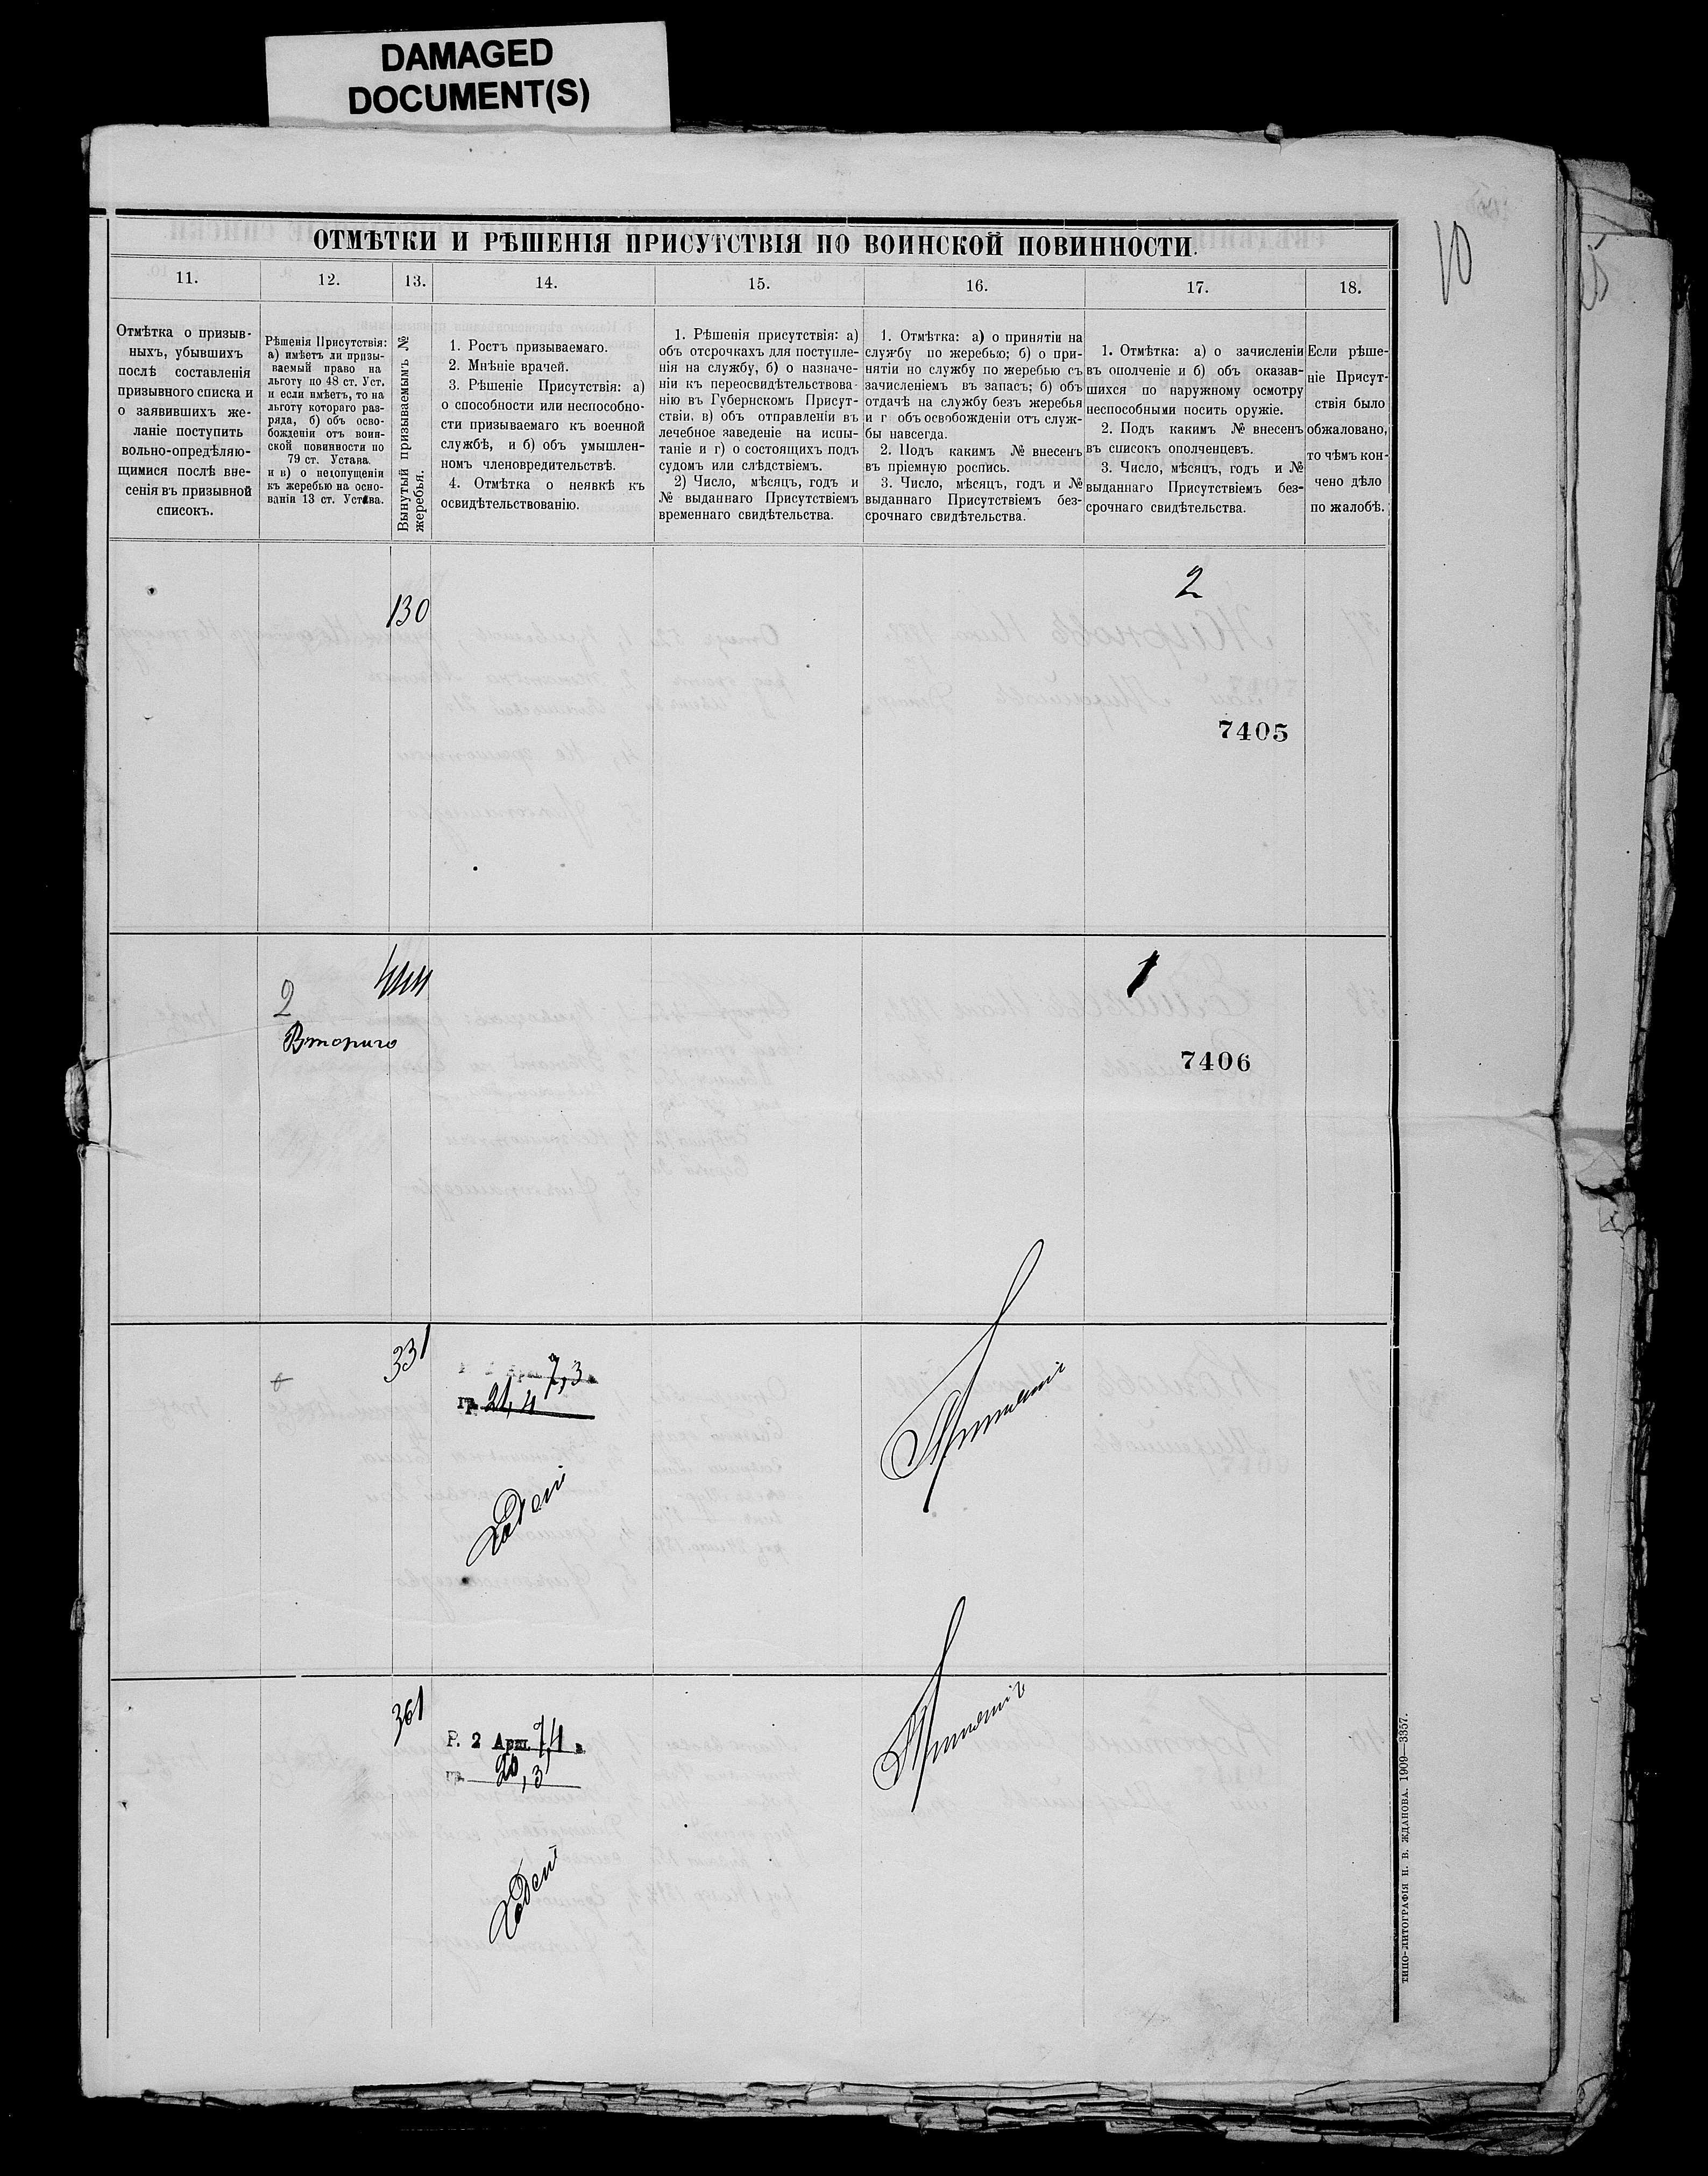 DAMAGED
DOCUMENT(S)
10
ОТМѢТКИ И РѢШЕНІЯ ПРИСУТСТВІЯ ПО ВОИНСКОЙ ПОВИННОСТИ.
11.
12.
13.
14.
15.
16.
17.
18.
Отмѣтка о призыв-
ныхъ, убывшихъ
послѣ составленія
призывного списка и
о заявившихъ же-
ланіе поступить
вольно-опредѣляю-
щимися послѣ вне-
сенія въ призывной
списокъ.
Рѣшенія Присутствія:
а) имѣетъ ли призы-
ваемый право на
льготу по 48 ст. Уст.
и если имѣетъ, то на
льготу котораго раз-
ряда, б) объ осво-
божденіи отъ воин-
ской повинности по
79 ст. Устава.
и в) о недопущеніи
къ жеребью на осно-
ваніи 13 ст. Устава.
Вынутый призываемымъ №
жеребья.
1. Ростъ призываемаго.
2. Мнѣніе врачей.
3. Рѣшеніе Присутствія: а)
о способности или неспособно-
сти призываемаго къ военной
службѣ, и б) объ умышлен-
номъ членовредительствѣ.
4. Отмѣтка о неявкѣ къ
освидѣтельствованію.
1. Рѣшенія присутствія: а)
объ отсрочкахъ для поступле-
нія на службу, б) о назначе-
ніи къ переосвидѣтельствова-
нію въ Губернскомъ Присут-
ствіи, в) объ отправленіи въ
лечебное заведеніе на испы-
таніе и г) о состоящихъ подъ
судомъ или слѣдствіемъ.
2) Число, мѣсяцъ, годъ и
№ выданнаго Присутствіемъ
временнаго свидѣтельства.
1. Отмѣтка: а) о принятіи на
службу по жеребью; б) о при-
нятіи но службу по жеребью съ
зачисленіемъ въ запасъ; б) объ
отдачѣ на службу безъ жеребья
и г объ освобожденіи отъ служ-
бы навсегда.
2. Подъ какимъ № внесенъ
въ пріемную роспись.
3. Число, мѣсяцъ, годъ и №
выданнаго Присутствіемъ без-
срочнаго свидѣтельства.
1. Отмѣтка: а) о зачисленіи
въ ополченіе и б) объ оказав-
шихся по наружному осмотру
неспособными носить оружіе.
2. Подъ какимъ № внесенъ
въ списокъ ополченцевъ.
3. Число, мѣсяцъ, годъ и №
выданнаго Присутствіемъ без-
срочнаго свидѣтельства.
Если рѣше-
ніе Присут-
ствія было
обжаловано,
то чѣмъ кон-
чено дѣло
по жалобѣ.
130
2
7405
444
2
Второго
1
7406
331
7,3
гр. 21,4
Годенъ
Принятъ
361
Р. 2 Арш. 7,4 в.
гр. 20,3
Годенъ
Принятъ
ТИПО-ЛИТОГРАФІЯ Н. В. ЖДАНОВА. 1909—3357.